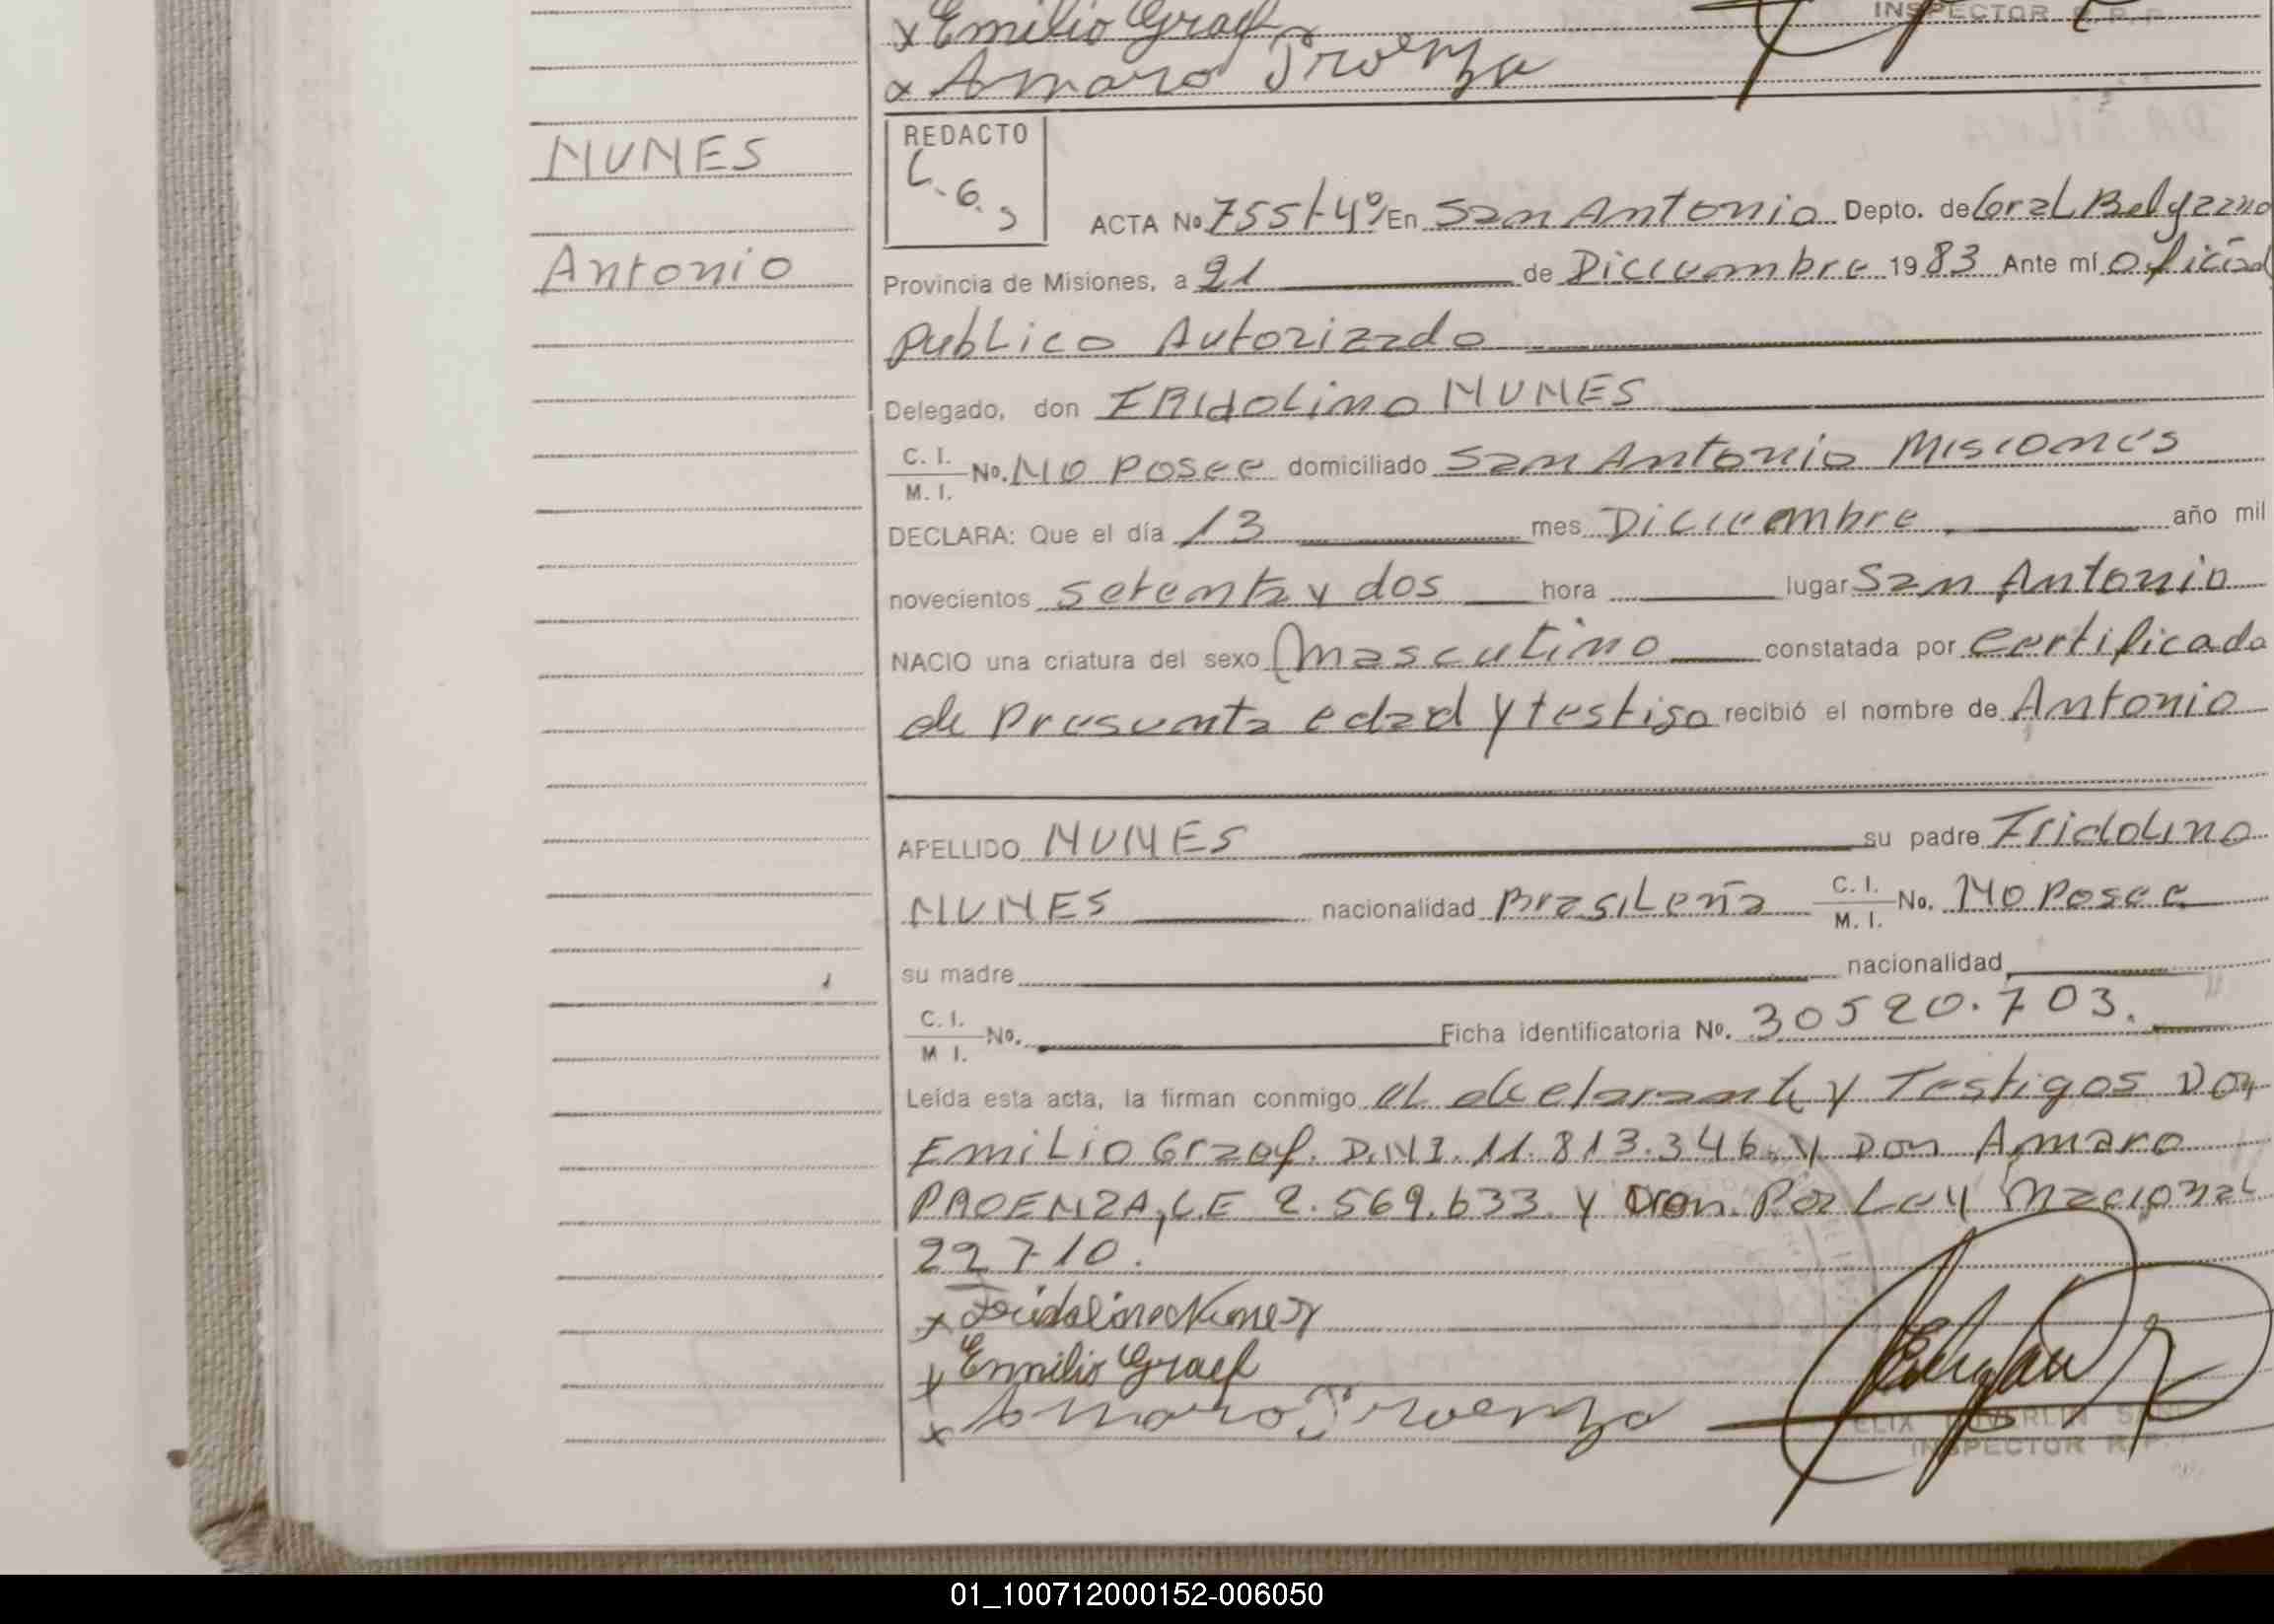 x Emilio Graef
INSPECTOR R.P.
x Amaro Proenza
NUNES
Antonio
REDACTO
L.G.S
ACTA No 755 t-4º En San Antonio Depto. de Gral Belgrano
Provincia de Misiones, a 21 de Diciembre 1983 Ante mí Oficial
Publico Autorizado
Delegado, don FRIdOLiNO NUNES
C. I. / M. I. No. No Posee domiciliado San Antonio Misiones
DECLARA: Que el día 13 mes Diciembre año mil
novecientos setenta y dos hora lugar San Antonio
NACIO una criatura del sexo Masculino constatada por Certificado
de Presunta edad y testigo recibió el nombre de Antonio
APELLIDO NUNES su padre Fridolino
NUNES nacionalidad Brasileña C. I. / M. I. No. No Posee
su madre nacionalidad
C. I. / M I. No. Ficha identificatoria No. 30520.703.
Leída esta acta, la firman conmigo el declarante y Testigos Don
Emilio Graef. D.N.I. 11.813.346. y Don Amaro
PROENZA, L.E 2.569.633. y Don. Por Ley Nacional
22710.
x Fridolino Nunes
x Emilio Graef
x Amaro Proenza
INSPECTOR R.P.
01_100712000152-006050